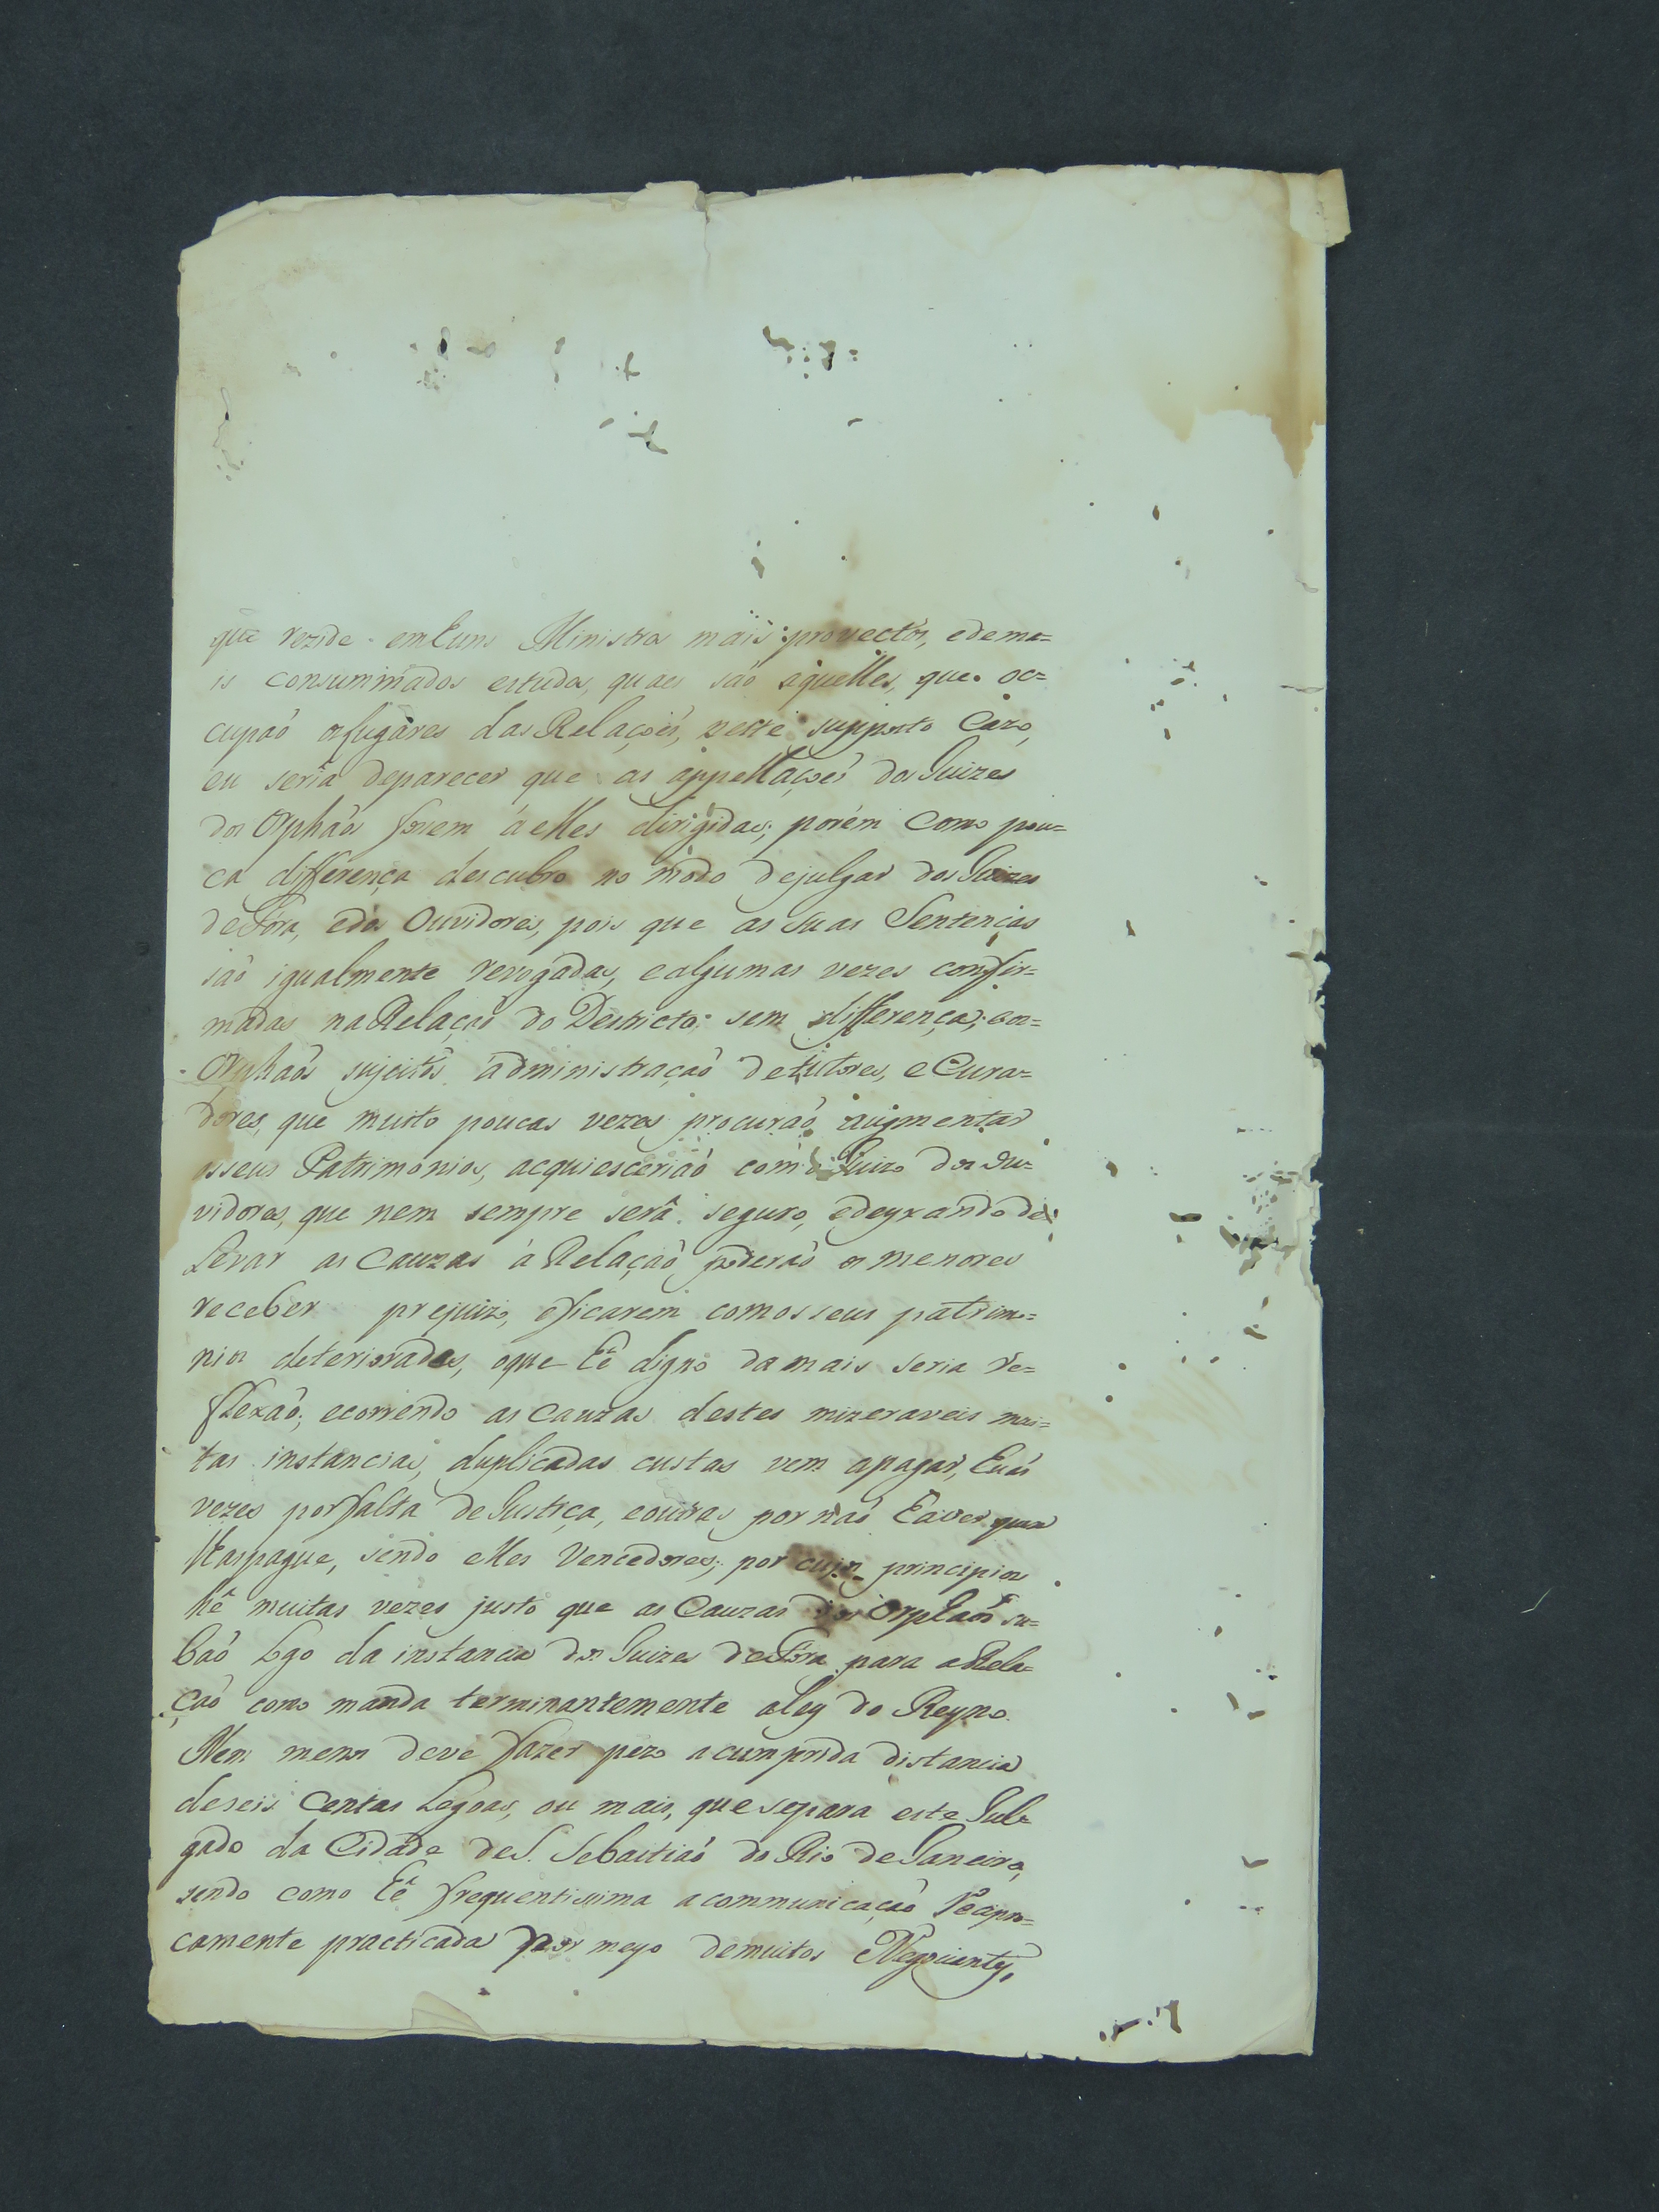 que rezide em huns Ministros mais provectos, edema=
is consummados estudos, quaes saó aquelles, que oc=
cupaó oslugares das Relaçoés, neste supposto Cazo,
eu seria deparecer que as appellaçoés dos Juizes
dos Orphaós fossem á elles dirigidas; porém como pou=
ca differença descubro no modo dejulgar dos Juizes
deFora, edos Ouvidores, pois que as suas Sentenças
saó igualmente revogadas, ealgumas vezes confir=
madas naRelaçaó do Destricto sem differença; eos=
Orphaós sujeitos ádministraçaó detutores, e Cura=
dores, que muito poucas vezes procuraó augmentar
osseus Patrimonios, acquiesceriaó com o Juizo dos Ou=
vidores, que nem sempre serâ seguro, edeyxando de
Levar as Cauzas á Relaçaó poderaó os menores
receber prejuizo, eficarem comosseus patrimo=
nios deteriorados, oque hê digno da mais seria re=
flexaó; ecorrendo as Cauzas destes mizeraveis mui=
tas instancias, duplicadas custas vem apagar, huás
vezes porfalta deJustiça, eoutras por naó haver quem
Haspague, sendo elles Vencedores; por cujos principios
hê muitas vezes justo que as Cauzas dos Orphaós su=
baó Logo da instancia dos Juizes deFora para aRela=
çaó como manda terminantemente aley do Reyno.
Nem menos deve fazer pezo acumprida distancia
deseis Centas Legoas, ou mais, que separa este Jul=
gado da Cidade deS. Sebastiaó do Rio deJaneiro,
sendo como hê frequentissima acommunicaçaó recipro=
camente practicada por meyo demuitos Negociantes,